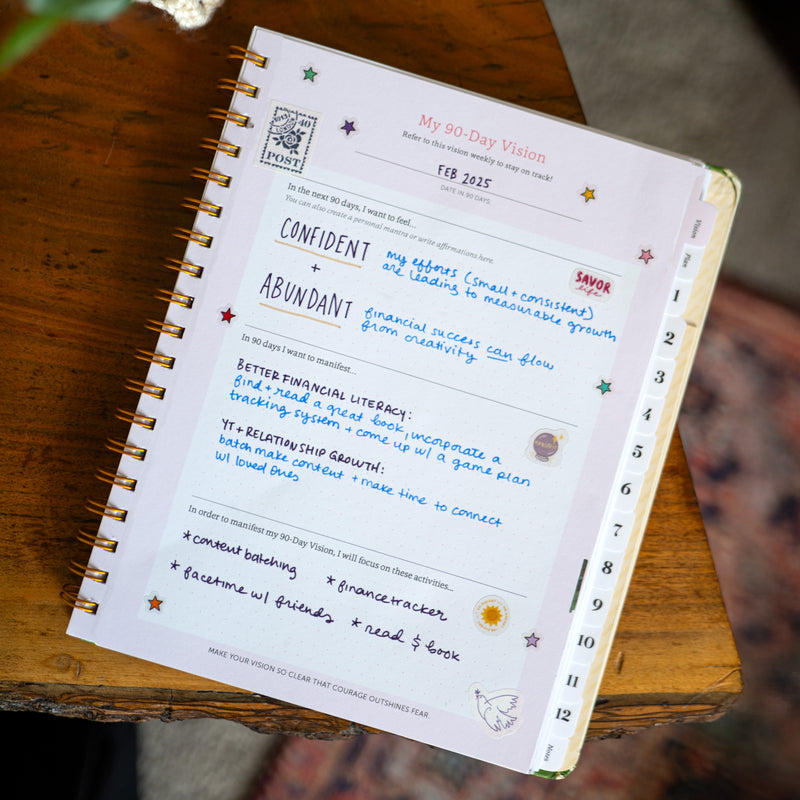 My 90-Day Vision
Refer to this vision weekly to stay on track!
FEB 2025
DATE IN 90 DAYS
LONDON
40
POST
In the next 90 days, I want to feel...
You can also create a personal mantra or write affirmations here.
CONFIDENT
my efforts (small + consistent)
are leading to measurable growth
SAVOR
life
+
ABUNDANT
financial success can flow
from creativity
In 90 days I want to manifest...
BETTER FINANCIAL LITERACY:
find + read a great book, incorporate a
tracking system + come up w/ a game plan
YT + RELATIONSHIP GROWTH:
batch make content + make time to connect
w/ loved ones
In order to manifest my 90-Day Vision, I will focus on these activities...
*content batching
* finance tracker
* facetime w/ friends
* read $ book
MAKE YOUR VISION SO CLEAR THAT COURAGE OUTSHINES FEAR.
Vision
Plan
1
2
3
4
5
6
7
8
9
10
11
12
Notes